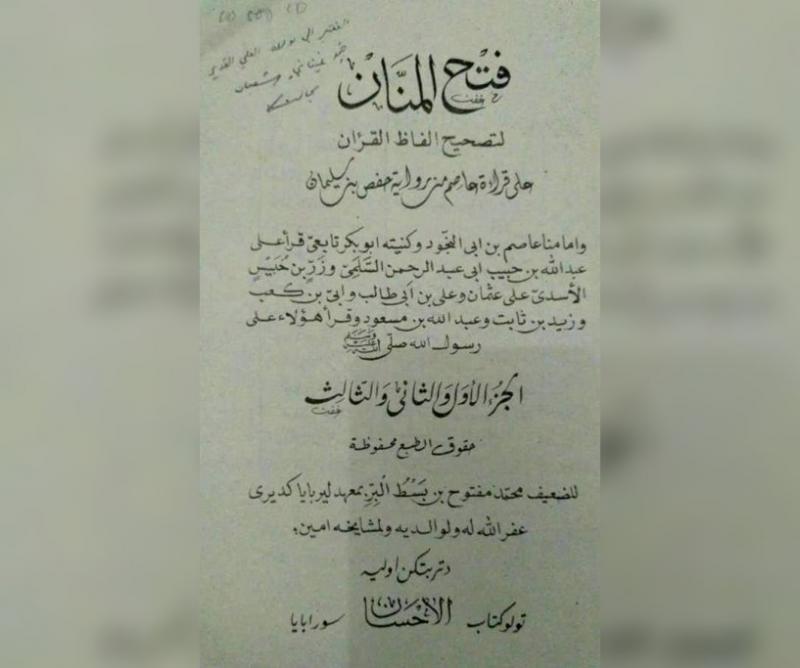 فتح المنّان
لتصحيح الفاظ القرأن
على قراءة عاصم من رواية حفص بن سليمان
وامامنا عاصم بن ابى النجود وكنيته ابو بكر تابعيّ قرأ على
عبدالله بن حبيب ابى عبد الرحمن السّلميّ وزرّ بن حُبَيْسٍ
الأسديّ على عثمان وعلى بن ابى طالب وابيّ بن كعب
وزيد بن ثابت وعبد الله بن مسعود وقرأ هؤلاء على
رسول الله صلى
الجزء الأول والثانى والثالث
حقوق الطبع محفوظة
للضعيف محمّد مفتوح بن بَسْطُ الْبِرِّ بمعهد ليربايا كديرى
غفر الله له ولوالديه ولمشايخه امين،
دتربتكن اوليه
توكو كتاب الإحسان سورابايا